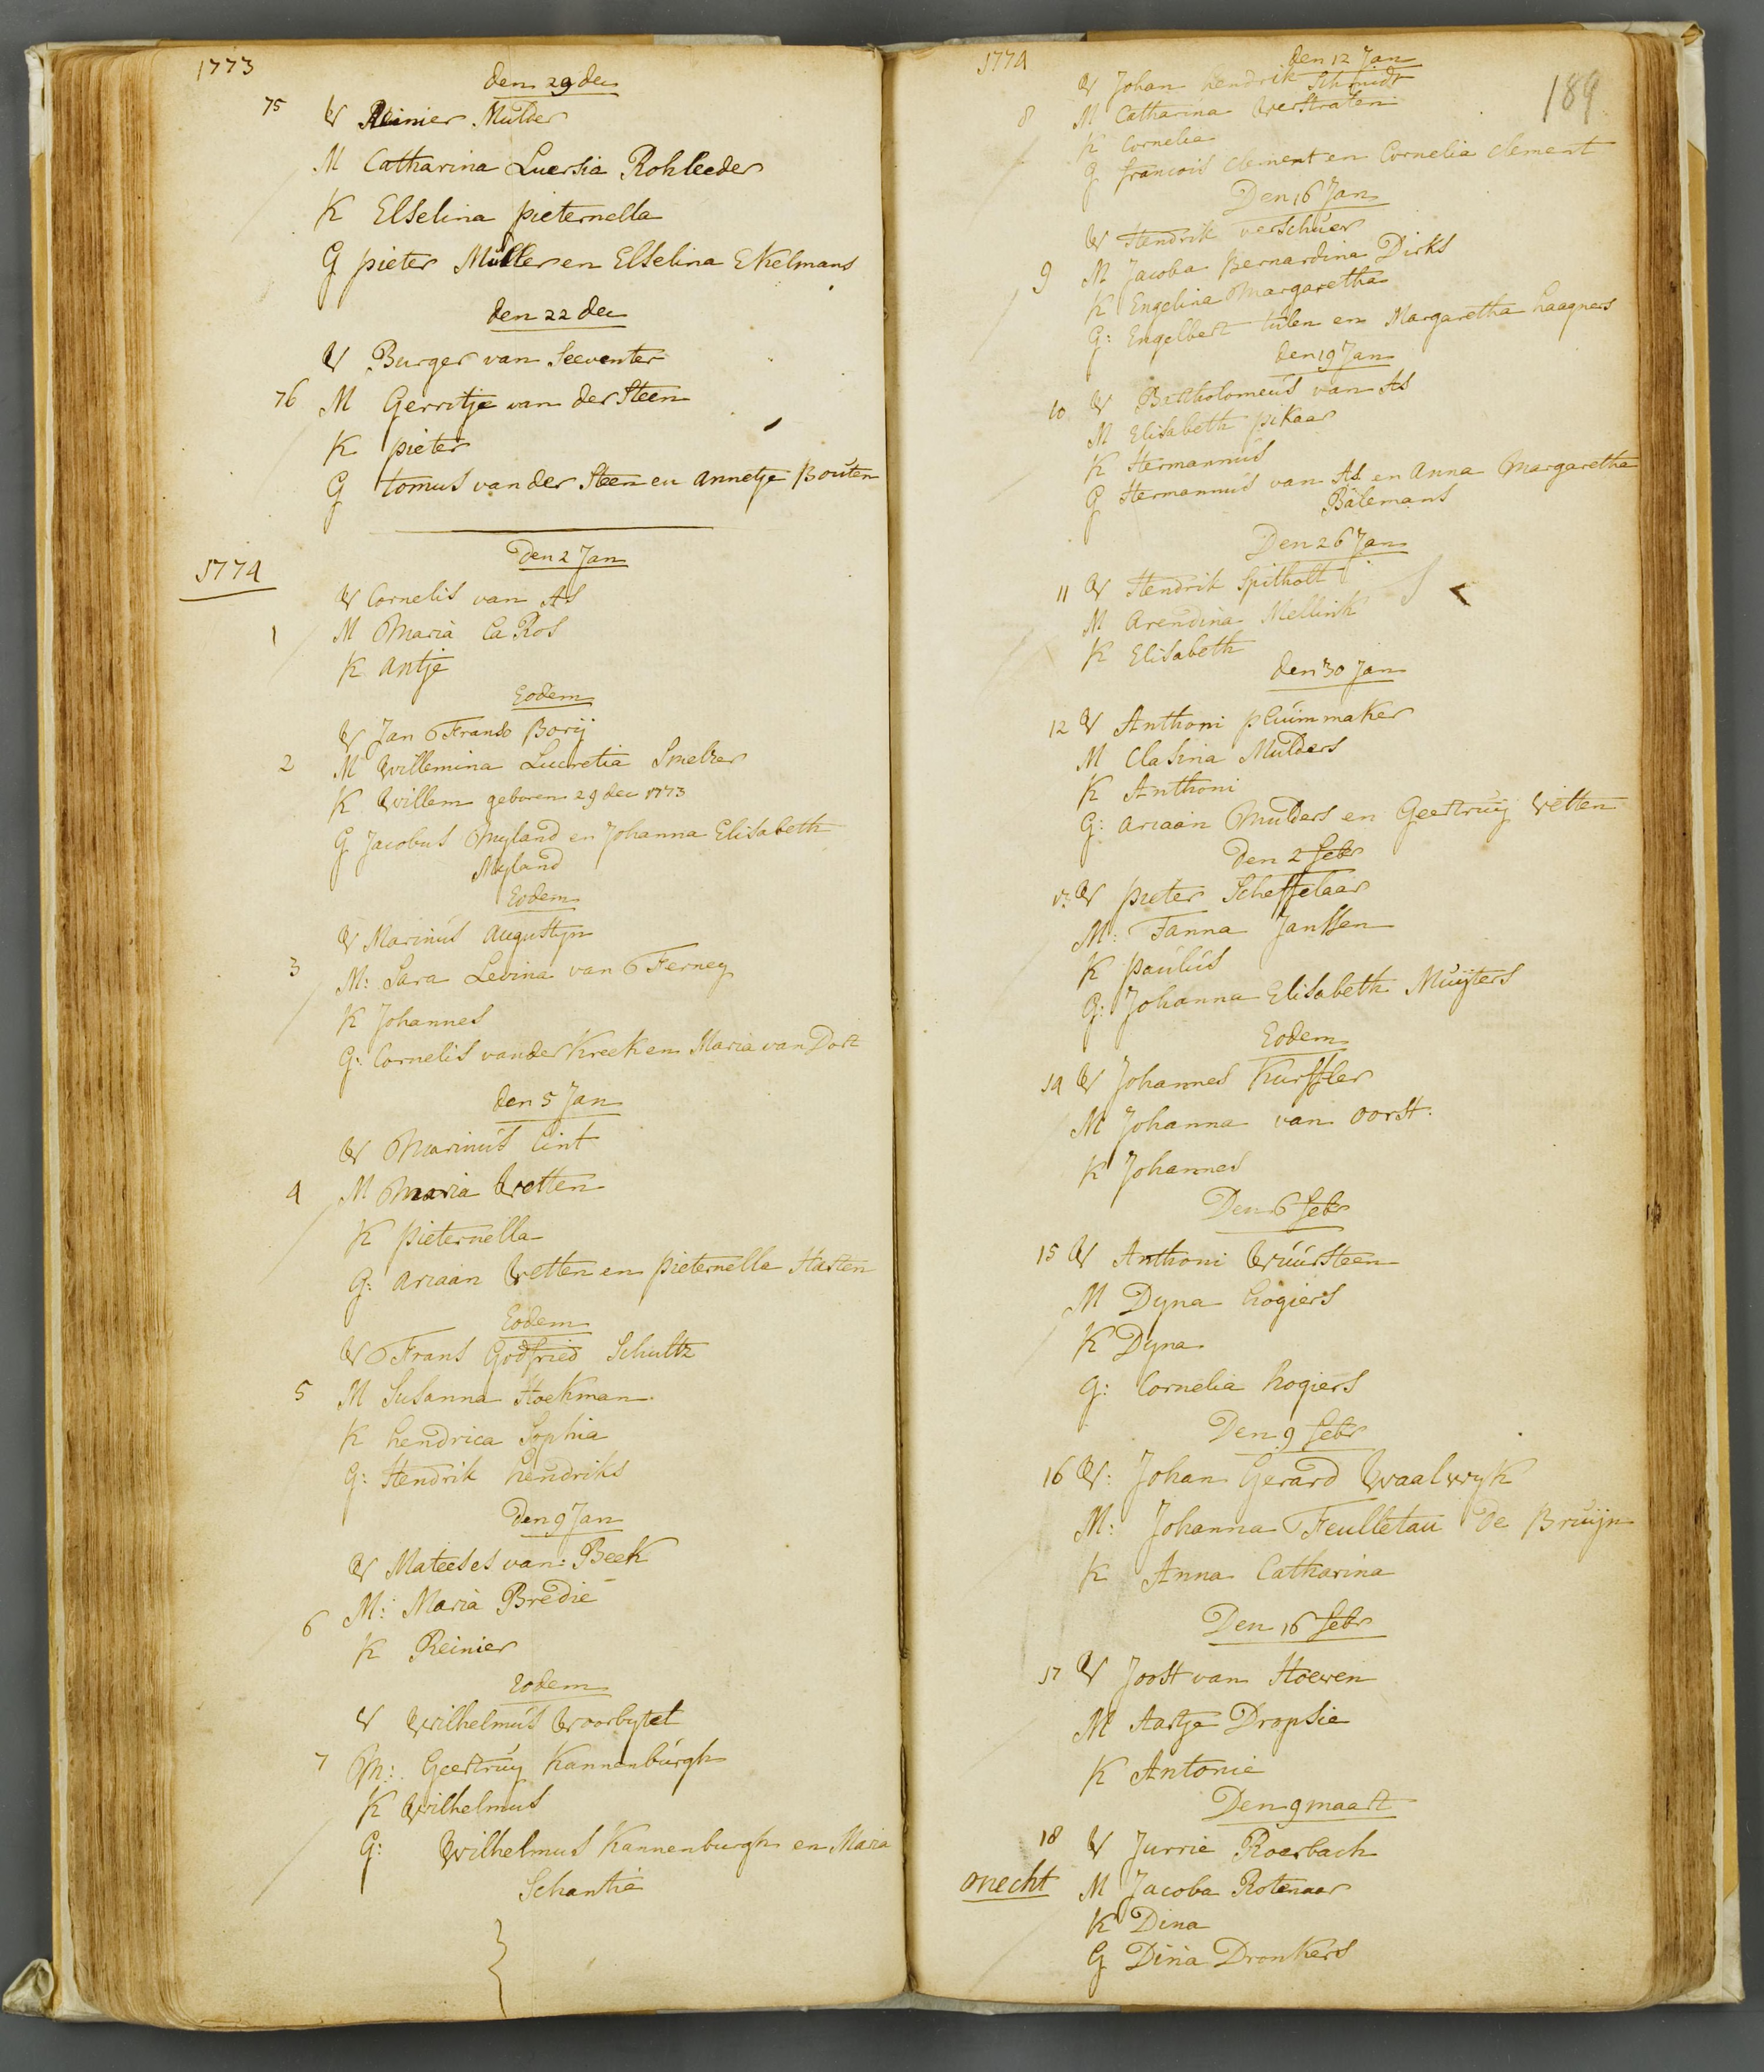 1773
den 29 dec
75 V Reinier Mulder
M Catharina Luersia Rohleeder
K Elselina pieternella
G pieter Muller en Elselina Ekelmans
den 22 dec
V Burger van Seeventer
76 M Gerritje van der Steen
K pieter
G tomus van der Steen en Annetje Bouten
1774
Den 2 Jan
V Cornelis van As
1 M Maria La Ros
K Antje
Eodem
V Jan Frans Borij
2 M Willemina Lucretia Smelzer
K Willem geboren 29 dec 1773
G Jacobus Myland en Johanna Elisabeth
Myland
Eodem
V Marinus Augustyn
3 M: Sara Levina van Ferney
K Johannes
G: Cornelis van der Kreek en Maria van Dort
den 5 Jan
V Marinus Lint
4 M Maria Vetten
K pieternella
G: Ariaan Vetten en pieternella Hasten
Eodem
V Frans Godfried Schultz
5 M Susanna Hoekman
K hendrica Sophia
G: Hendrik hendriks
Den 9 Jan
V Mateeses van Beek
M: Maria Bredie
6 K Reinier
Eodem
V Wilhelmus Voorbytel
7 M: Geertruy Kannenburgh
K Wilhelmus
G: Wilhelmus Kannenburgh en Maria
Schantie
1774
189
den 12 Jan
V Johan hendrik Schmidt
8 M Catharina Verstraten
K Cornelia
G francois Clement en Cornelia Clement
Den 16 Jan
V Hendrik verschuer
9 M Jacoba Bernardina Dirks
K Engelina Margaretha
G: Engelbert tulen en Margaretha haagners
den 19 Jan
10 V Bartholomeus van As
M Elisabeth pikaar
K Hermannus
G Hermannus van As en Anna Margaretha
Balemans
Den 26 Jan
11 V Hendrik Spitholt
M Arendina Mellink
K Elisabeth
den 30 Jan
12 V Anthoni pluimmaker
M Clasina Mulders
K Anthoni
G: Ariaan Mulders en Geertruy Vetten
Den 2 febr
13 V pieter Scheffelaar
M: Fanna Janssen
K paulus
G: Johanna Elisabeth Muijters
Eodem
14 V Johannes Kurffler
M Johanna van oorst
K Johannes
Den 6 febr
15 V Anthoni Vuursteen
M Dyna hogiers
K Dyna
G: Cornelia hogiers
Den 9 febr
16 V: Johan Gerard Waalwyk
M: Johanna Feulletau De Bruijn
K Anna Catharina
Den 16 febr
17 V Joost van Hoeven
M Aartje Dropsie
K Antonie
Den 9 maart
18 V Jurrie Roerbach
onecht M Jacoba Rotenaar
K Dina
G Dina Dronkers